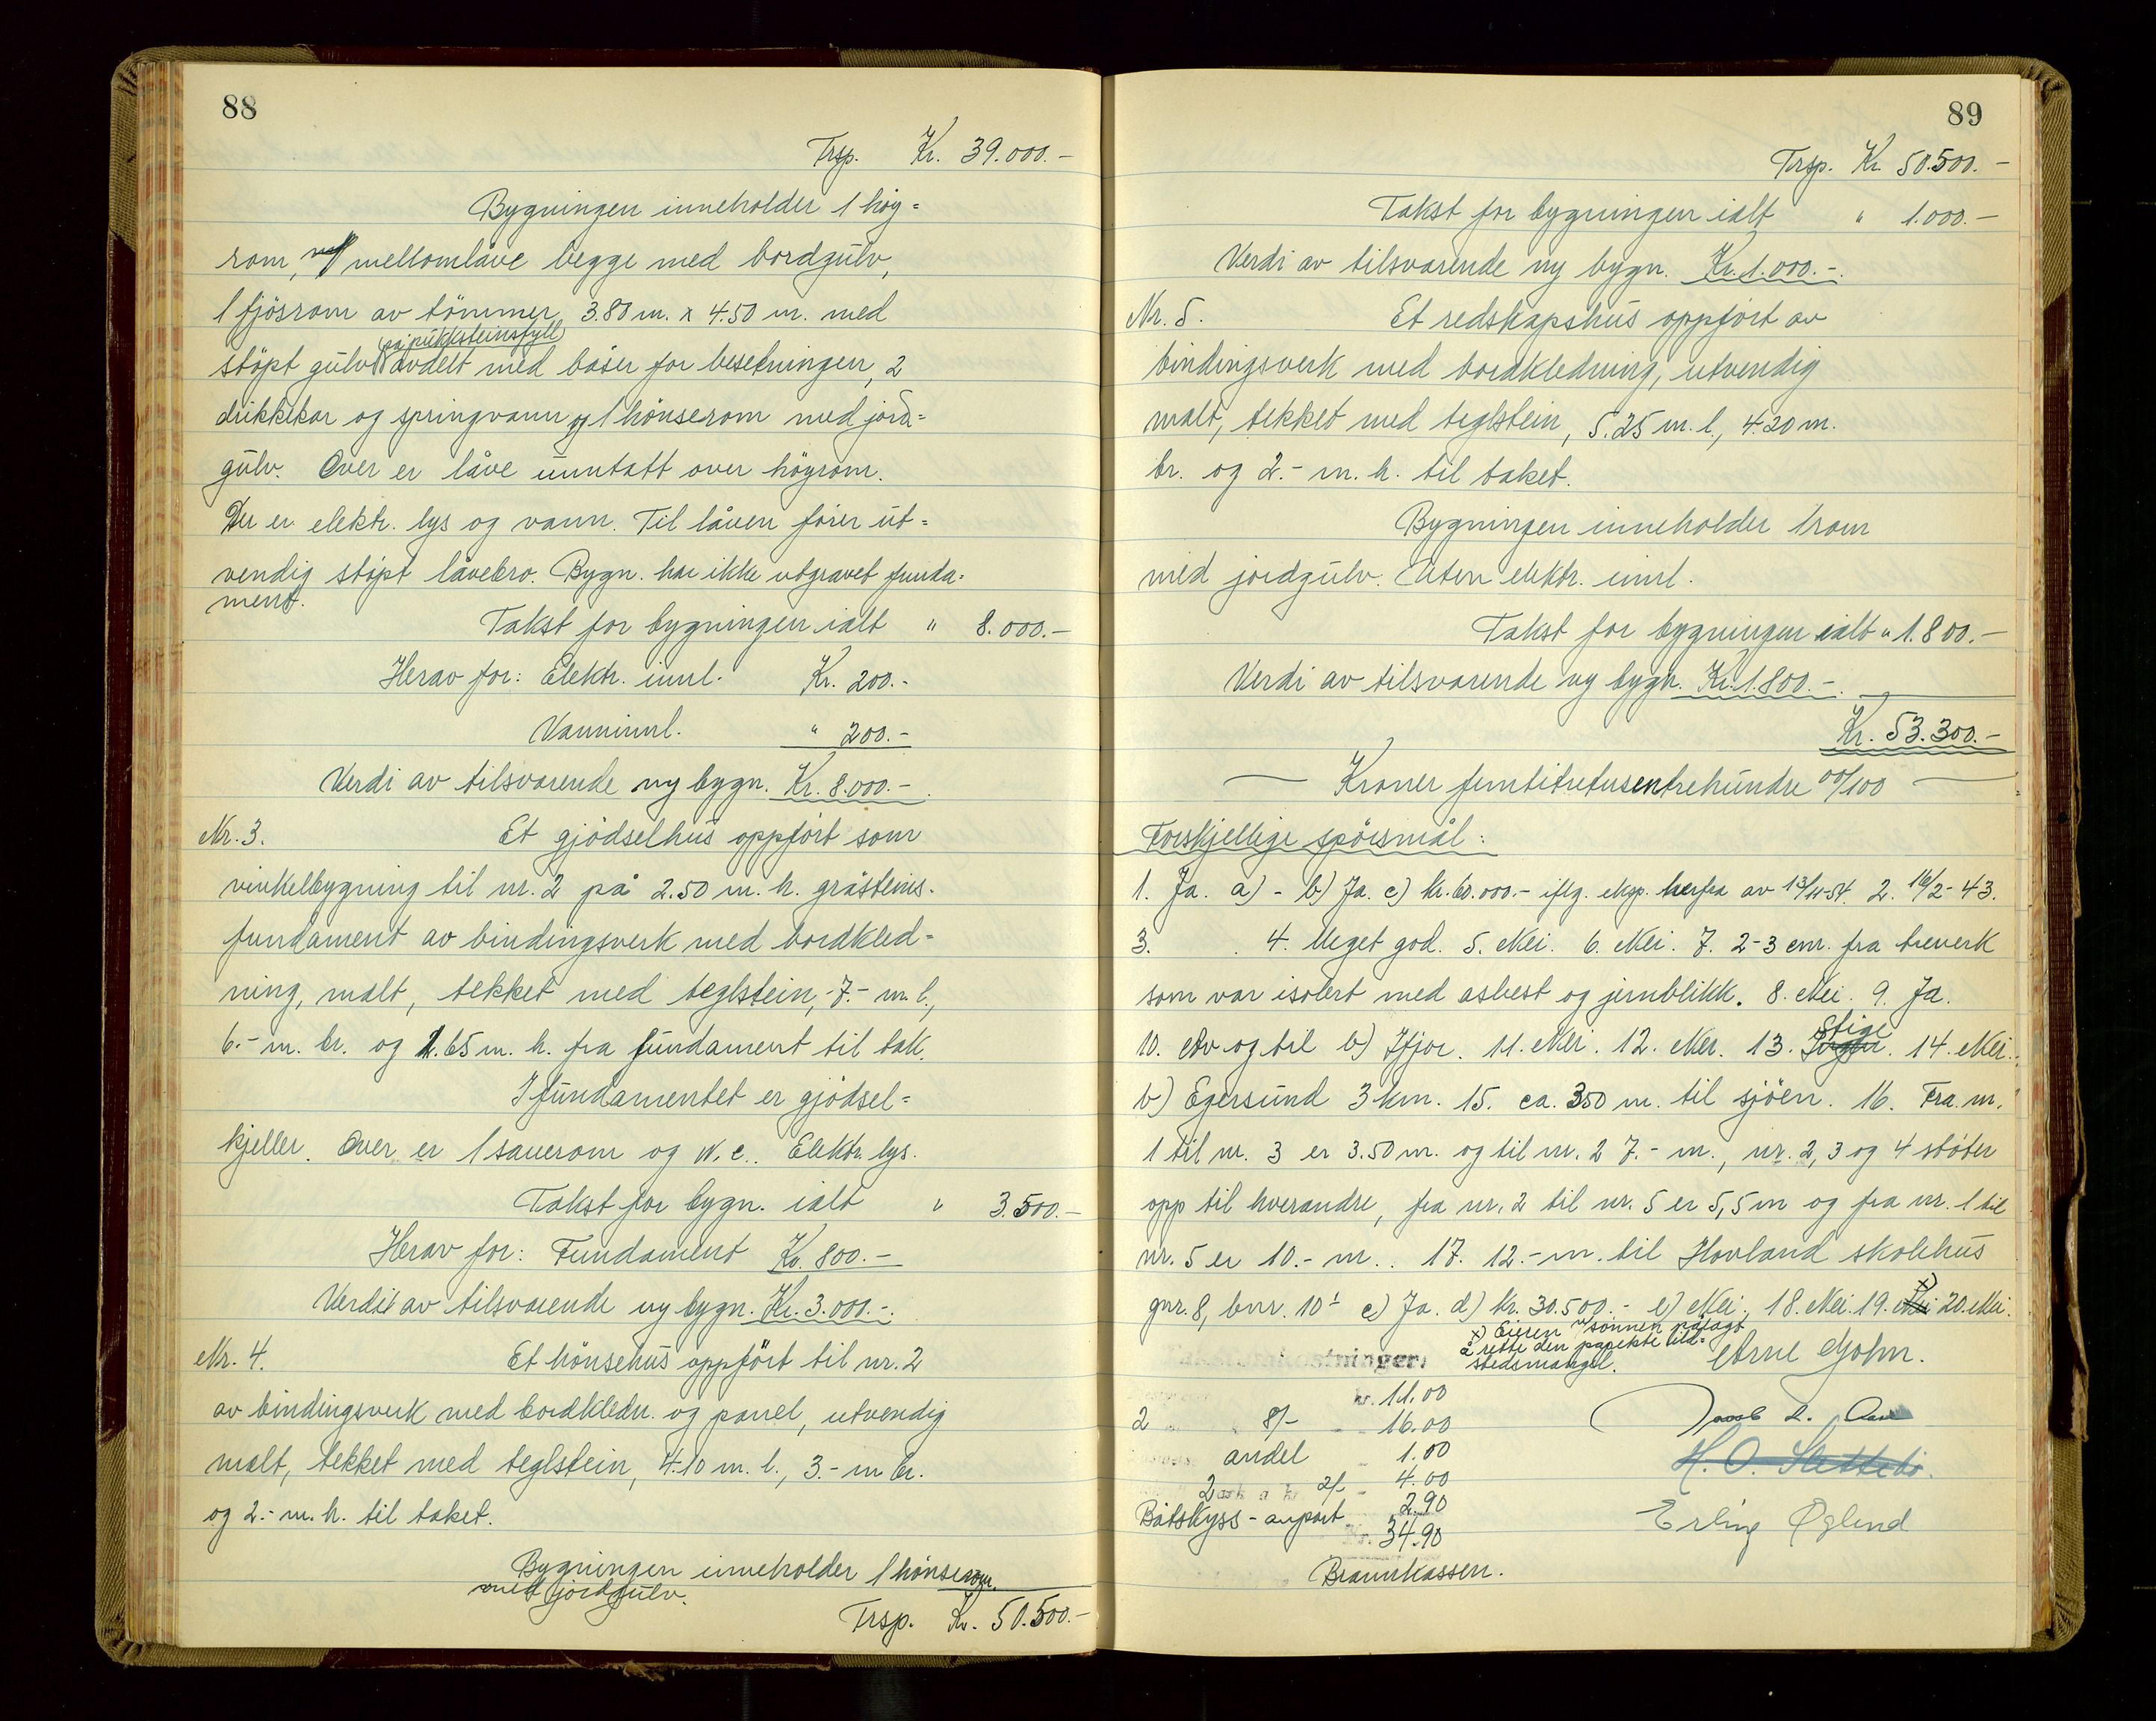 88
Trsp. Kr. 39.000.-
Bygningen inneholder 1 høy=
rom, mellomlåve begge med bordgulv,
1 fjösrom av tömmer 3.80 m. x 4.50 m. med
på pukksteinsfyll
stöpt gulv avdelt med båser for besetningen, 2
drikkekar og springvann og 1 hönserom med jord=
gulv. Over er låve unntatt over höyrom.
Der er elektr. lys og vann. Til låven fører ut=
vendig støpt låvebro. Bygn. har ikke utgravet funda=
ment.
Takst for bygningen ialt " 8.000.-
Herav for: Elektr. innl. Kr. 200.-
Vanninnl. " 200.-
Verdi av tilsvarende ny bygn. Kr. 8.000.-
Nr. 3. Et gjödselhus oppfört som
vinkelbygning til nr. 2 på 2.50 m. h. gråsteins-
fundament av bindingsverk med bordkled=
ning, malt, tekket med teglstein, 7.- m. l.,
6.- m. br. og 2.65 m. h. fra fundament til tak.
I fundamentet er gjødsel=
kjeller. Over er 1 sauerom og w.c.. Elektr. lys.
Takst for bygn. ialt " 3.500.-
Herav for: Fundament Kr. 800.-
Verdi av tilsvarende ny bygn. Kr. 3.000.-
Nr. 4. Et hönsehus oppfört til nr. 2
av bindingsverk med bordkledn. og panel, utvendig
malt, tekket med teglstein, 4.10 m. l., 3.- m br.
og 2.- m. h. til taket.
Bygningen inneholder 1 hönserom
med jordgulv.
Trsp. Kr. 50.500.-
89
Trsp. Kr. 50.500.-
Takst for bygningen ialt " 1.000.-
Verdi av tilsvarende ny bygn. Kr. 1.000.-
Nr. 5. Et redskapshus oppfört av
bindingsverk med bordkledning, utvendig
malt, tekket med teglstein, 5.25 m. l., 4.20 m.
br. og 2.- m. h. til taket.
Bygningen inneholder 1 rom
med jordgulv. Uten elektr. innl.
Takst for bygningen ialt " 1.800.-
Verdi av tilsvarende ny bygn. Kr. 1.800.-
Kr. 53.300.-
Kroner femtitretusentrehundre 00/100
Forskjellige spörsmål:
1. Ja. a) - b) Ja. c) Kr. 60.000.- iflg. eksp. herfra av 13/11-54. 2. 16/2-43.
3. 4. Meget god. 5. Nei. 6. Nei. 7. 2-3 cm. fra treverk
som var isolert med asbest og jernblikk. 8. Nei. 9. Ja.
10. Av og til b) Ifjor. 11. Nei. 12. Nei. 13. Stige 14. Nei.
b) Egersund 3 km. 15. ca. 350 m. til sjöen. 16. Fra nr.
1 til nr. 3 er 3.50 m. og til nr. 2 7.- m., nr. 2, 3 og 4 støter
opp til hverandre, fra nr. 2 til nr. 5 er 5,5 m og fra nr. 1 til
nr. 5 er 10.- m.. 17. 12.- m. til Hovland skolehus
gnr. 8, bnr. 10! c) Ja. d) Kr. 30.500.- e) Nei. 18. Nei. 19. Nei x) 20. Nei.
x) Eieren v/ sönnen pålagt
å rette den påpekte ild=
stedsmangel.
Arne Gohn.
kr. 11.00
2 8/- 16.00
andel 1.00
2 ark a kr 2/- 4.00
Båtskyss - anpart 2.90
Kr. 34.90
H. O. Slettebö.
Erling Øglend
Brannkassen.